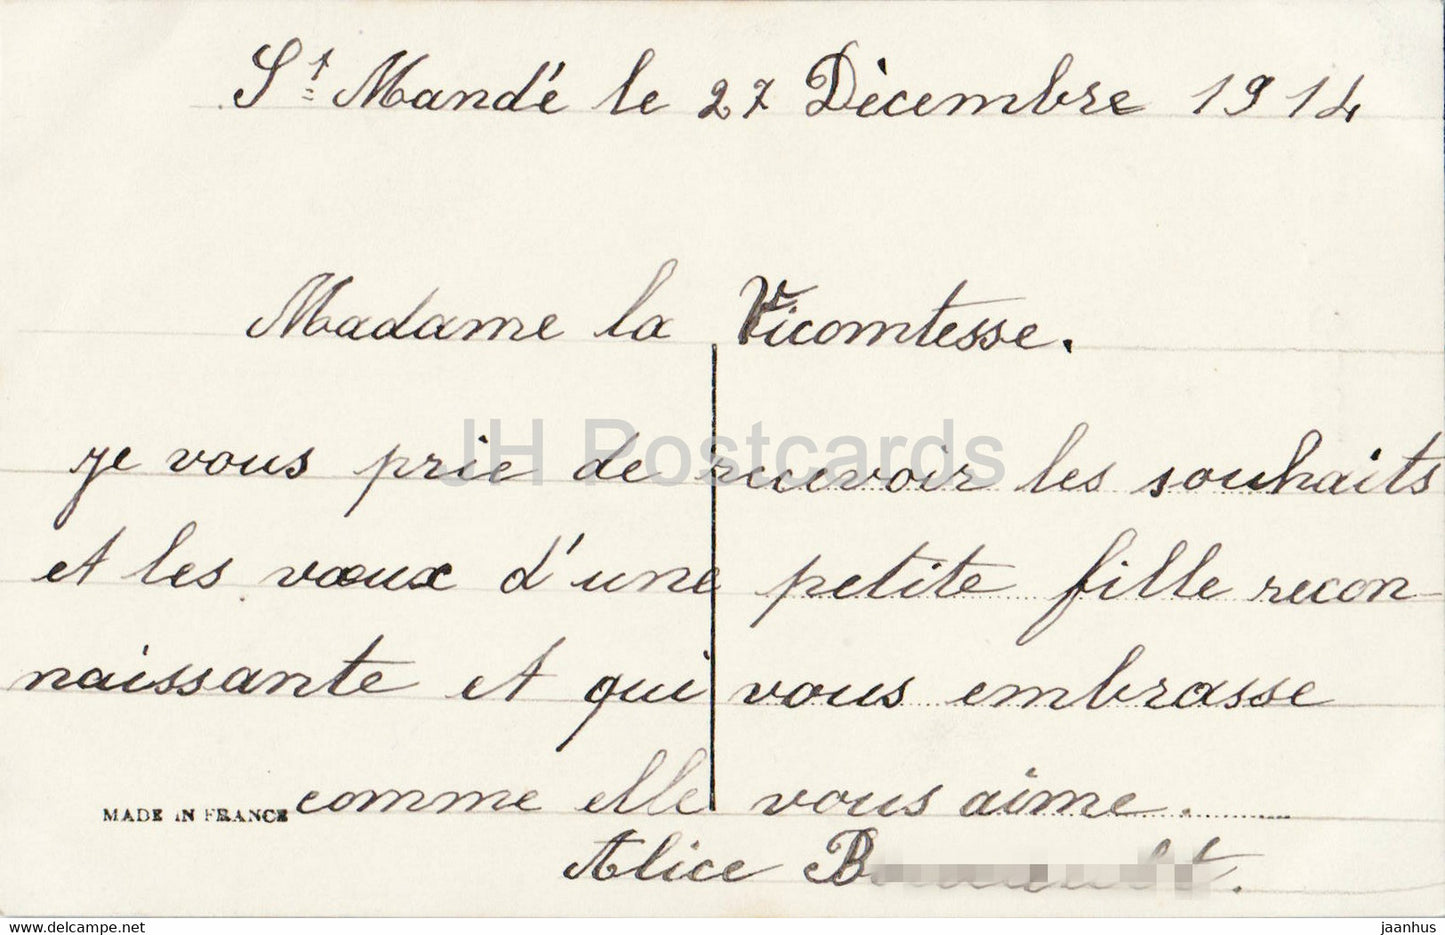 St Mandé le 27 Dècembre 1914
Madame la Vicomtesse.
je vous prie de recevoir les souhaits
et les vœux d'une petite fille recon-
naissante et qui vous embrasse
comme elle vous aime.
Alice
MADE IN FRANCE
JH Postcards
www.hippostcard.com
jaanhus